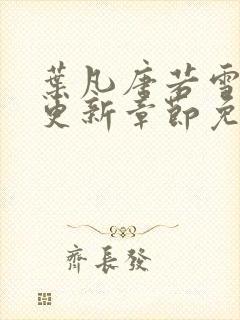 葉凡唐若雪
更新章節免
齊長發